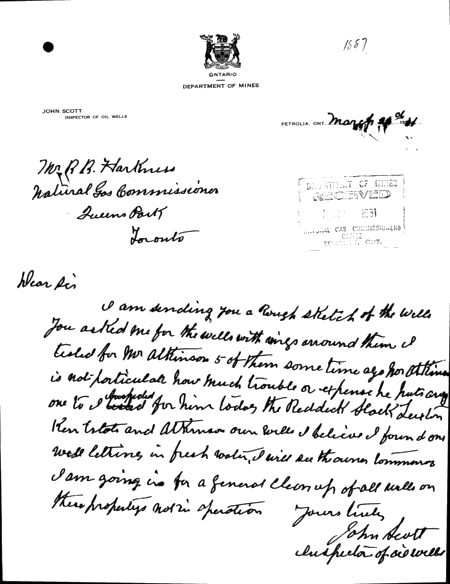 1887
ONTARIO
DEPARTMENT OF MINES
JOHN SCOTT
INSPECTOR OF OIL WELLS
PETROLIA, ONT. March
Mr R B. Harkness
Natural Gas Commissioner
Queens Park
Toronto
DEPARTMENT OF MINES
RECEIVED
1931
NATURAL GAS COMMISSIONERS
OFFICE
TORONTO, ONT.
Dear Sir
I am sending you a Rough sketch of the wells
You asked me for the wells with rings arround them I
tested for Mr Atkinson 5 of them some time ago Mr Atkinson
is not particular how much trouble or expense he puts any
one to I Inspected for him today the Reddick Slack
Ken Estate and Atkinson own wells I believe I found one
well letting in fresh water, I will see the owner tommorow
I am going in for a general clean up of all wells on
these propertys not in operation
Yours truly
John Scott
Inspector of oil wells